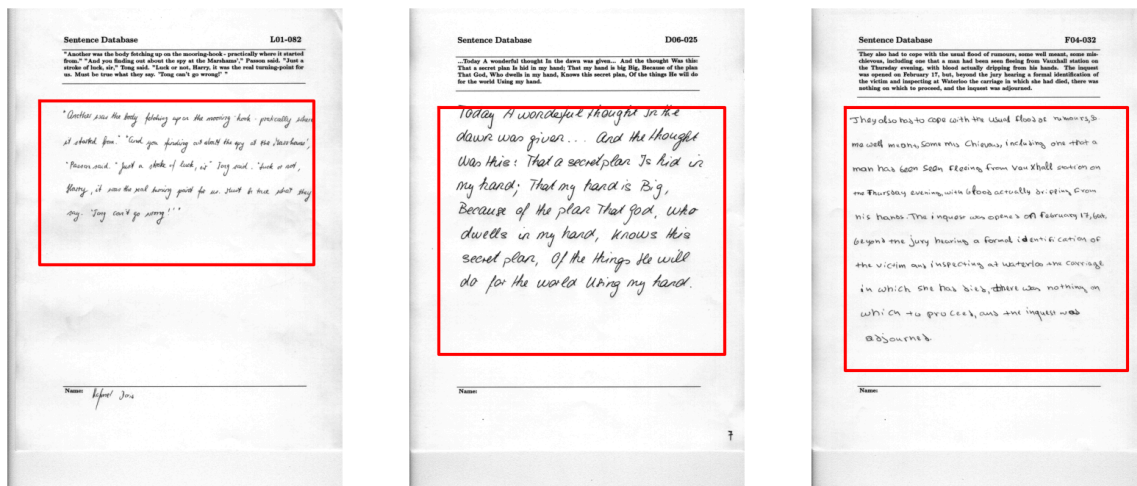 Sentence Database L01-082
"Another was the body fetching up on the mooring-hook - practically where it started
from." "And you finding out about the spy at the Marshams'," Passon said. "Just a
stroke of luck, sir," Tong said. "Luck or not, Harry, it was the real turning-point for
us. Must be true what they say. 'Tong can't go wrong!' "
"Another was the body fetching up on the mooring-hook - practically where
it started from." "And you finding out about the spy at the Marshams',"
Passon said. "Just a stroke of luck, sir" Tong said. "Luck or not,
Harry, it was the real turning point for us. Must be true what they
say. 'Tong can't go wrong!'"
Name:
Sentence Database D06-025
...Today A wonderful thought In the dawn was given... And the thought Was this:
That a secret plan Is hid in my hand; That my hand is big Big, Because of the plan
That God, Who dwells in my hand, Knows this secret plan, Of the things He will do
for the world Using my hand.
Today A wonderful thought In the
dawn was given... And the thought
Was this: That a secret plan Is hid in
my hand; That my hand is Big,
Because of the plan That God, Who
dwells in my hand, Knows this
secret plan, Of the things He will
do for the world Using my hand.
Name:
7
Sentence Database F04-032
They also had to cope with the usual flood of rumours, some well meant, some mis-
chievous, including one that a man had been seen fleeing from Vauxhall station on
the Thursday evening, with blood actually dripping from his hands. The inquest
was opened on February 17, but, beyond the jury hearing a formal identification of
the victim and inspecting at Waterloo the carriage in which she had died, there was
nothing on which to proceed, and the inquest was adjourned.
They also had to cope with the usual flood of rumours, so
me well meant, some mis chievous, including one that a
man had been seen fleeing from Vauxhall station on
the Thursday evening, with blood actually dripping from
his hands. The inquest was opened on February 17, but,
beyond the jury hearing a formal identification of
the victim and inspecting at Waterloo the carriage
in which she had died, there was nothing on
which to proceed, and the inquest was
adjourned.
Name: